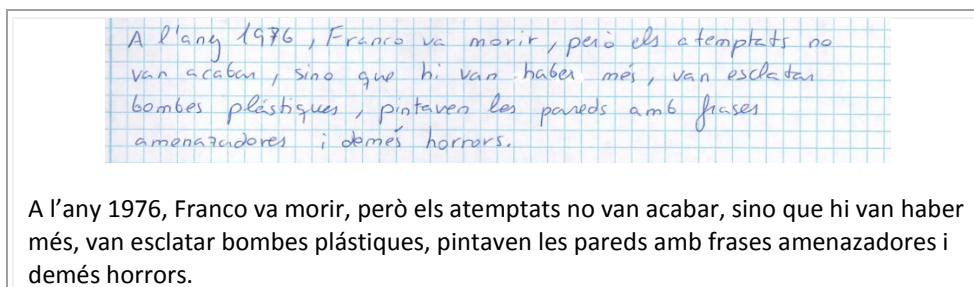 A l'any 1976, Franco va morir, però els atemptats no
van acabar, sino que hi van haber més, van esclatar
bombes plástiques, pintaven les pareds amb frases
amenazadores i demés horrors.
A l’any 1976, Franco va morir, però els atemptats no van acabar, sino que hi van haber
més, van esclatar bombes plástiques, pintaven les pareds amb frases amenazadores i
demés horrors.